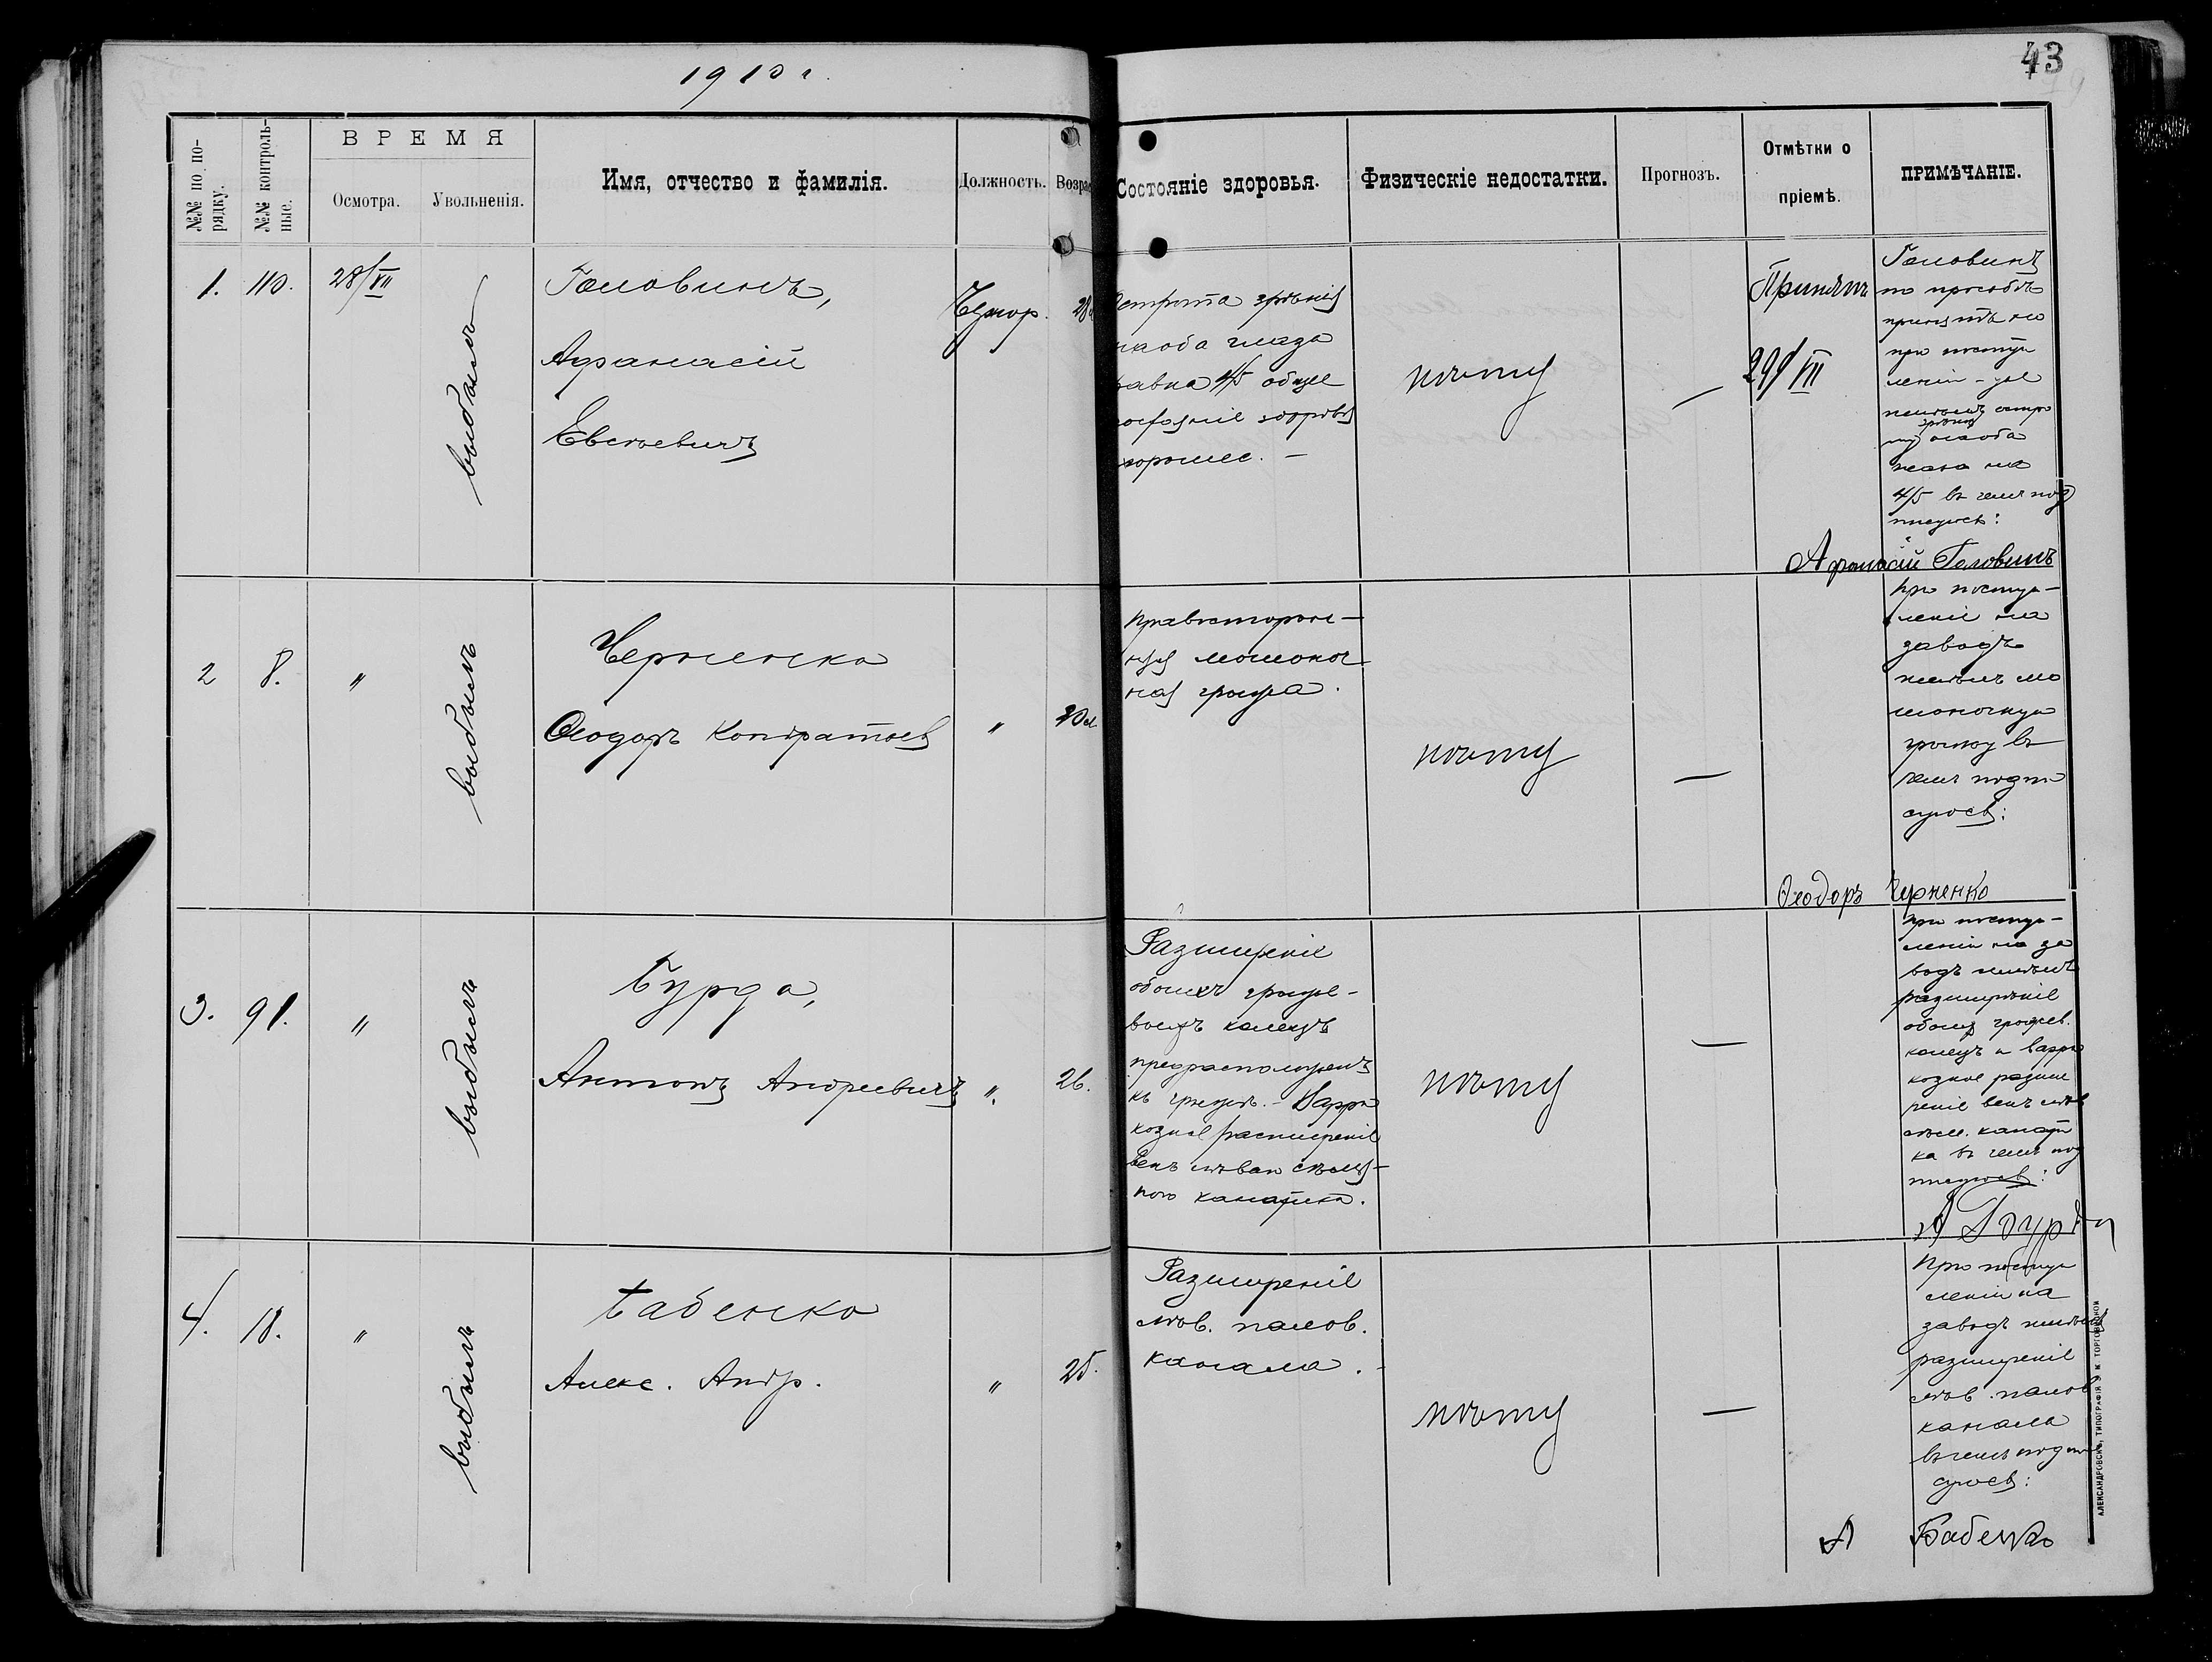 1910 г.
43
№№ по по-
рядку.
№№ контроль-
ные.
ВРЕМЯ
Осмотра.
Увольненія.
Имя, отчество и фамилія.
Должность.
Возрас
Состояніе здоровья.
Физическіе недостатки.
Прогнозъ.
Отмѣтки о
пріемѣ.
ПРИМѢЧАНІЕ.
1.
110.
28/VII
выбылъ
Головинъ,
Афанасій
Евсѣевичъ
28
Острота зрѣнія
глаза
равна 4/5 общее
состояніе здоровья
хорошее. –
нѣту
—
Принятъ
29/VII
Головинъ
по просьбѣ
принятъ но
при посту
леніи - уже
имѣлъ остро
зрѣнія
ту
на
4/5 въ чемъ под
писуюсь:
Афанасій Головинъ
2
8.
"
выбылъ
Черненко
Ѳеодоръ Кондратьев
"
30 л.
Правосторон-
няя мошоноч
ная грыжа.
нѣту
—
при поступ-
леніи на
заводъ
имѣлъ мо
шоночную
грыжу въ
чемъ подпи
суюсь:
Ѳеодоръ Черненко
3.
91.
"
выбылъ
Бурда,
Антонъ Андреевичъ
".
26.
Разширеніе
обоихъ грыже-
выхъ колецъ
предрасположенъ
къ грыжѣ. - Варри
козное расширеніе
венъ лѣваго сѣмян-
ного канатика.
нѣту
—
при поступ-
леніи на за
водъ имѣлъ
разширеніе
обоихъ грыжев.
колецъ и варри
козное разши
реніе венъ лѣв
сѣмен. канати
ка въ чемъ под
писуюсь:
А Бурда
4.
18.
"
выбылъ
Бабенко
Алекс. Андр.
"
25.
Разширеніе
лѣв. пахов.
канала.
нѣту
—
При поступ
леніи на
заводъ имѣлъ
разширеніе
лѣв. пахов
канала
въ чемъ подпи
суюсь:
А Бабенко
АЛЕКСАНДРОВСКЪ, ТИПОГРАФІЯ Э. М. ТОРГОВИЦКОЙ